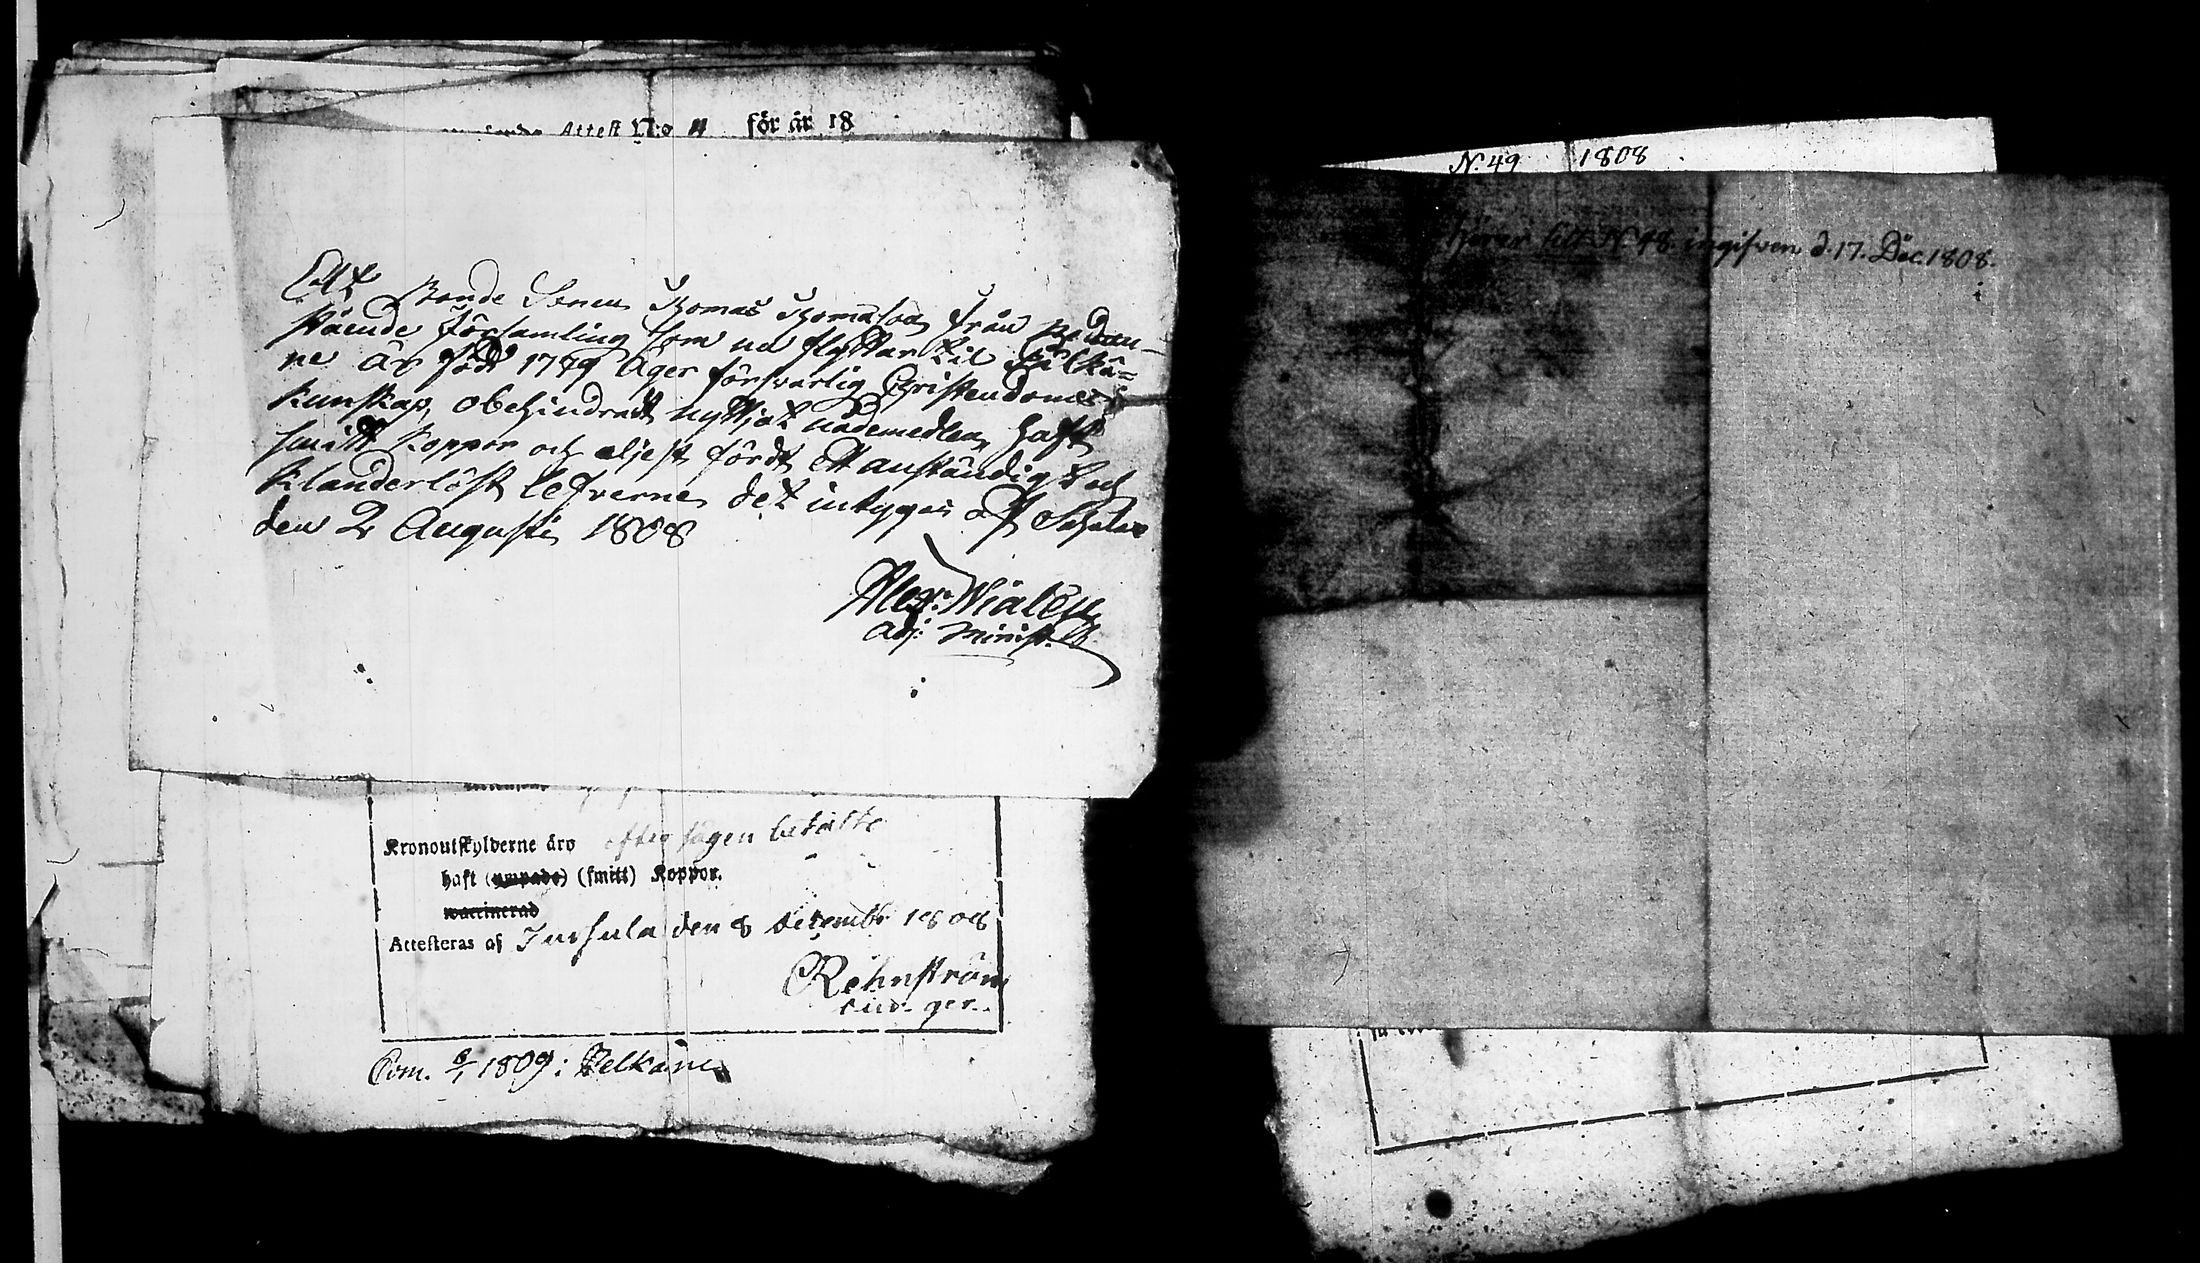 Attest N:o 11 för år 18
Att Bonde Sonen Thomas Thomason från nedan-
stående församling som nu flyttar til Pälkä=
ne är född 1779 äger försvarlig Christendoms
kunskap, obehindradt nyttjat nådemedlen, haft
smitt koppor och eljest fördt ett anständigt och
klanderlöst lefverne, det intygas af Sahalax
den 2 Augusti 1808
Alex: Wialén
Adj: Minist.
Kronoutskylderne äro efter sägen betalte
haft (ympade) (smitt) Koppor.
waccinerad
Attesteras af Jushula den 8 Decembr 1808
Rehnström
Com. 8/1 1809: Pelkäne
N. 49 1808
hörer till N 48. ingifven d. 17. Dec. 1808.